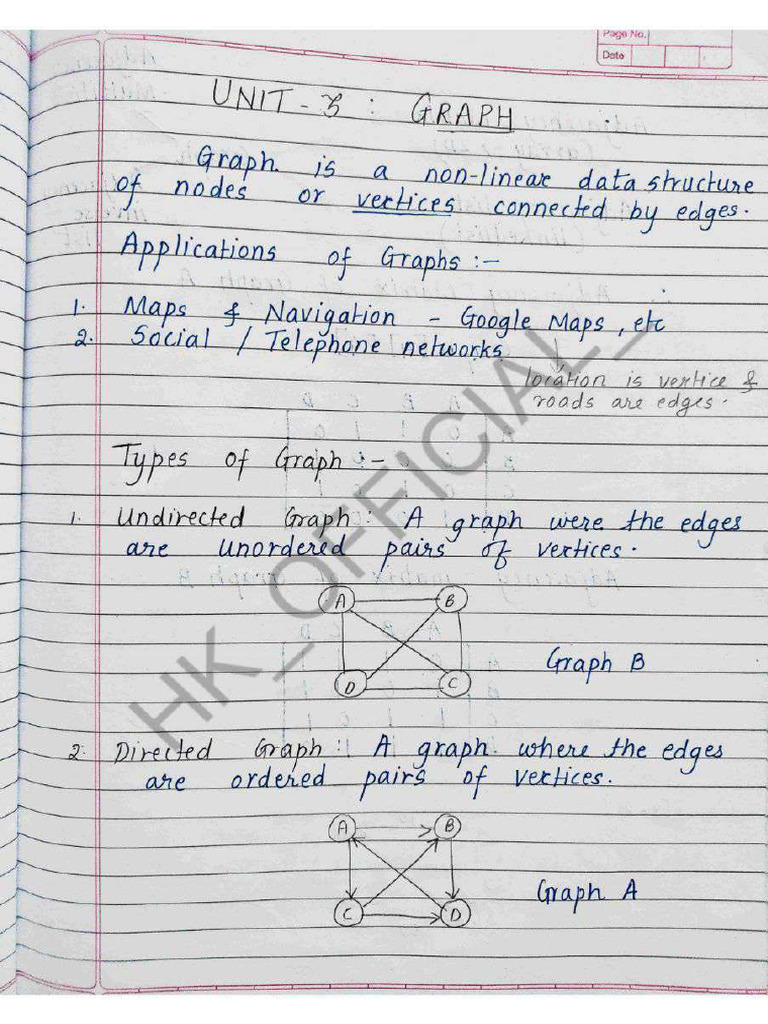 Page No.
Date
UNIT - 3 : GRAPH
Graph is a non-linear data structure
of nodes or vertices connected by edges.
Applications of Graphs :-
1. Maps & Navigation - Google Maps, etc
2. Social / Telephone networks.
location is vertice &
roads are edges.
Types of Graph :-
1. Undirected Graph : A graph were the edges
are unordered pairs of vertices.
A B
Graph B
D C
2. Directed Graph : A graph where the edges
are ordered pairs of vertices.
A B
Graph A
C D
HK_OFFICIAL_